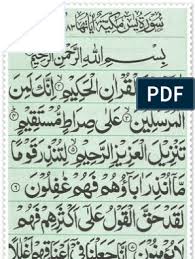 سُورَةُ يٰسٓ مَكِّيَّةٌ اٰيَاتُهَا ٨٣
بِسْمِ اللهِ الرَّحْمٰنِ الرَّحِيْمِ
الْقُرْاٰنِ الْحَكِيْمِ اِنَّكَ لَمِنَ
PDF
الْمُرْسَلِيْنَ ٣ عَلٰى صِرَاطٍ مُسْتَقِيْمٍ ٤
تَنْزِيْلَ الْعَزِيْزِ الرَّحِيْمِ ٥ لِتُنْذِرَ قَوْمًا
مَّآ اُنْذِرَ اٰبَاؤُهُمْ فَهُمْ غٰفِلُوْنَ ٦
لَقَدْ حَقَّ الْقَوْلُ عَلٰٓى اَكْثَرِهِمْ فَهُمْ
لَا يُؤْمِنُوْنَ ٧ اِنَّا جَعَلْنَا فِيْٓ اَعْنَاقِهِمْ